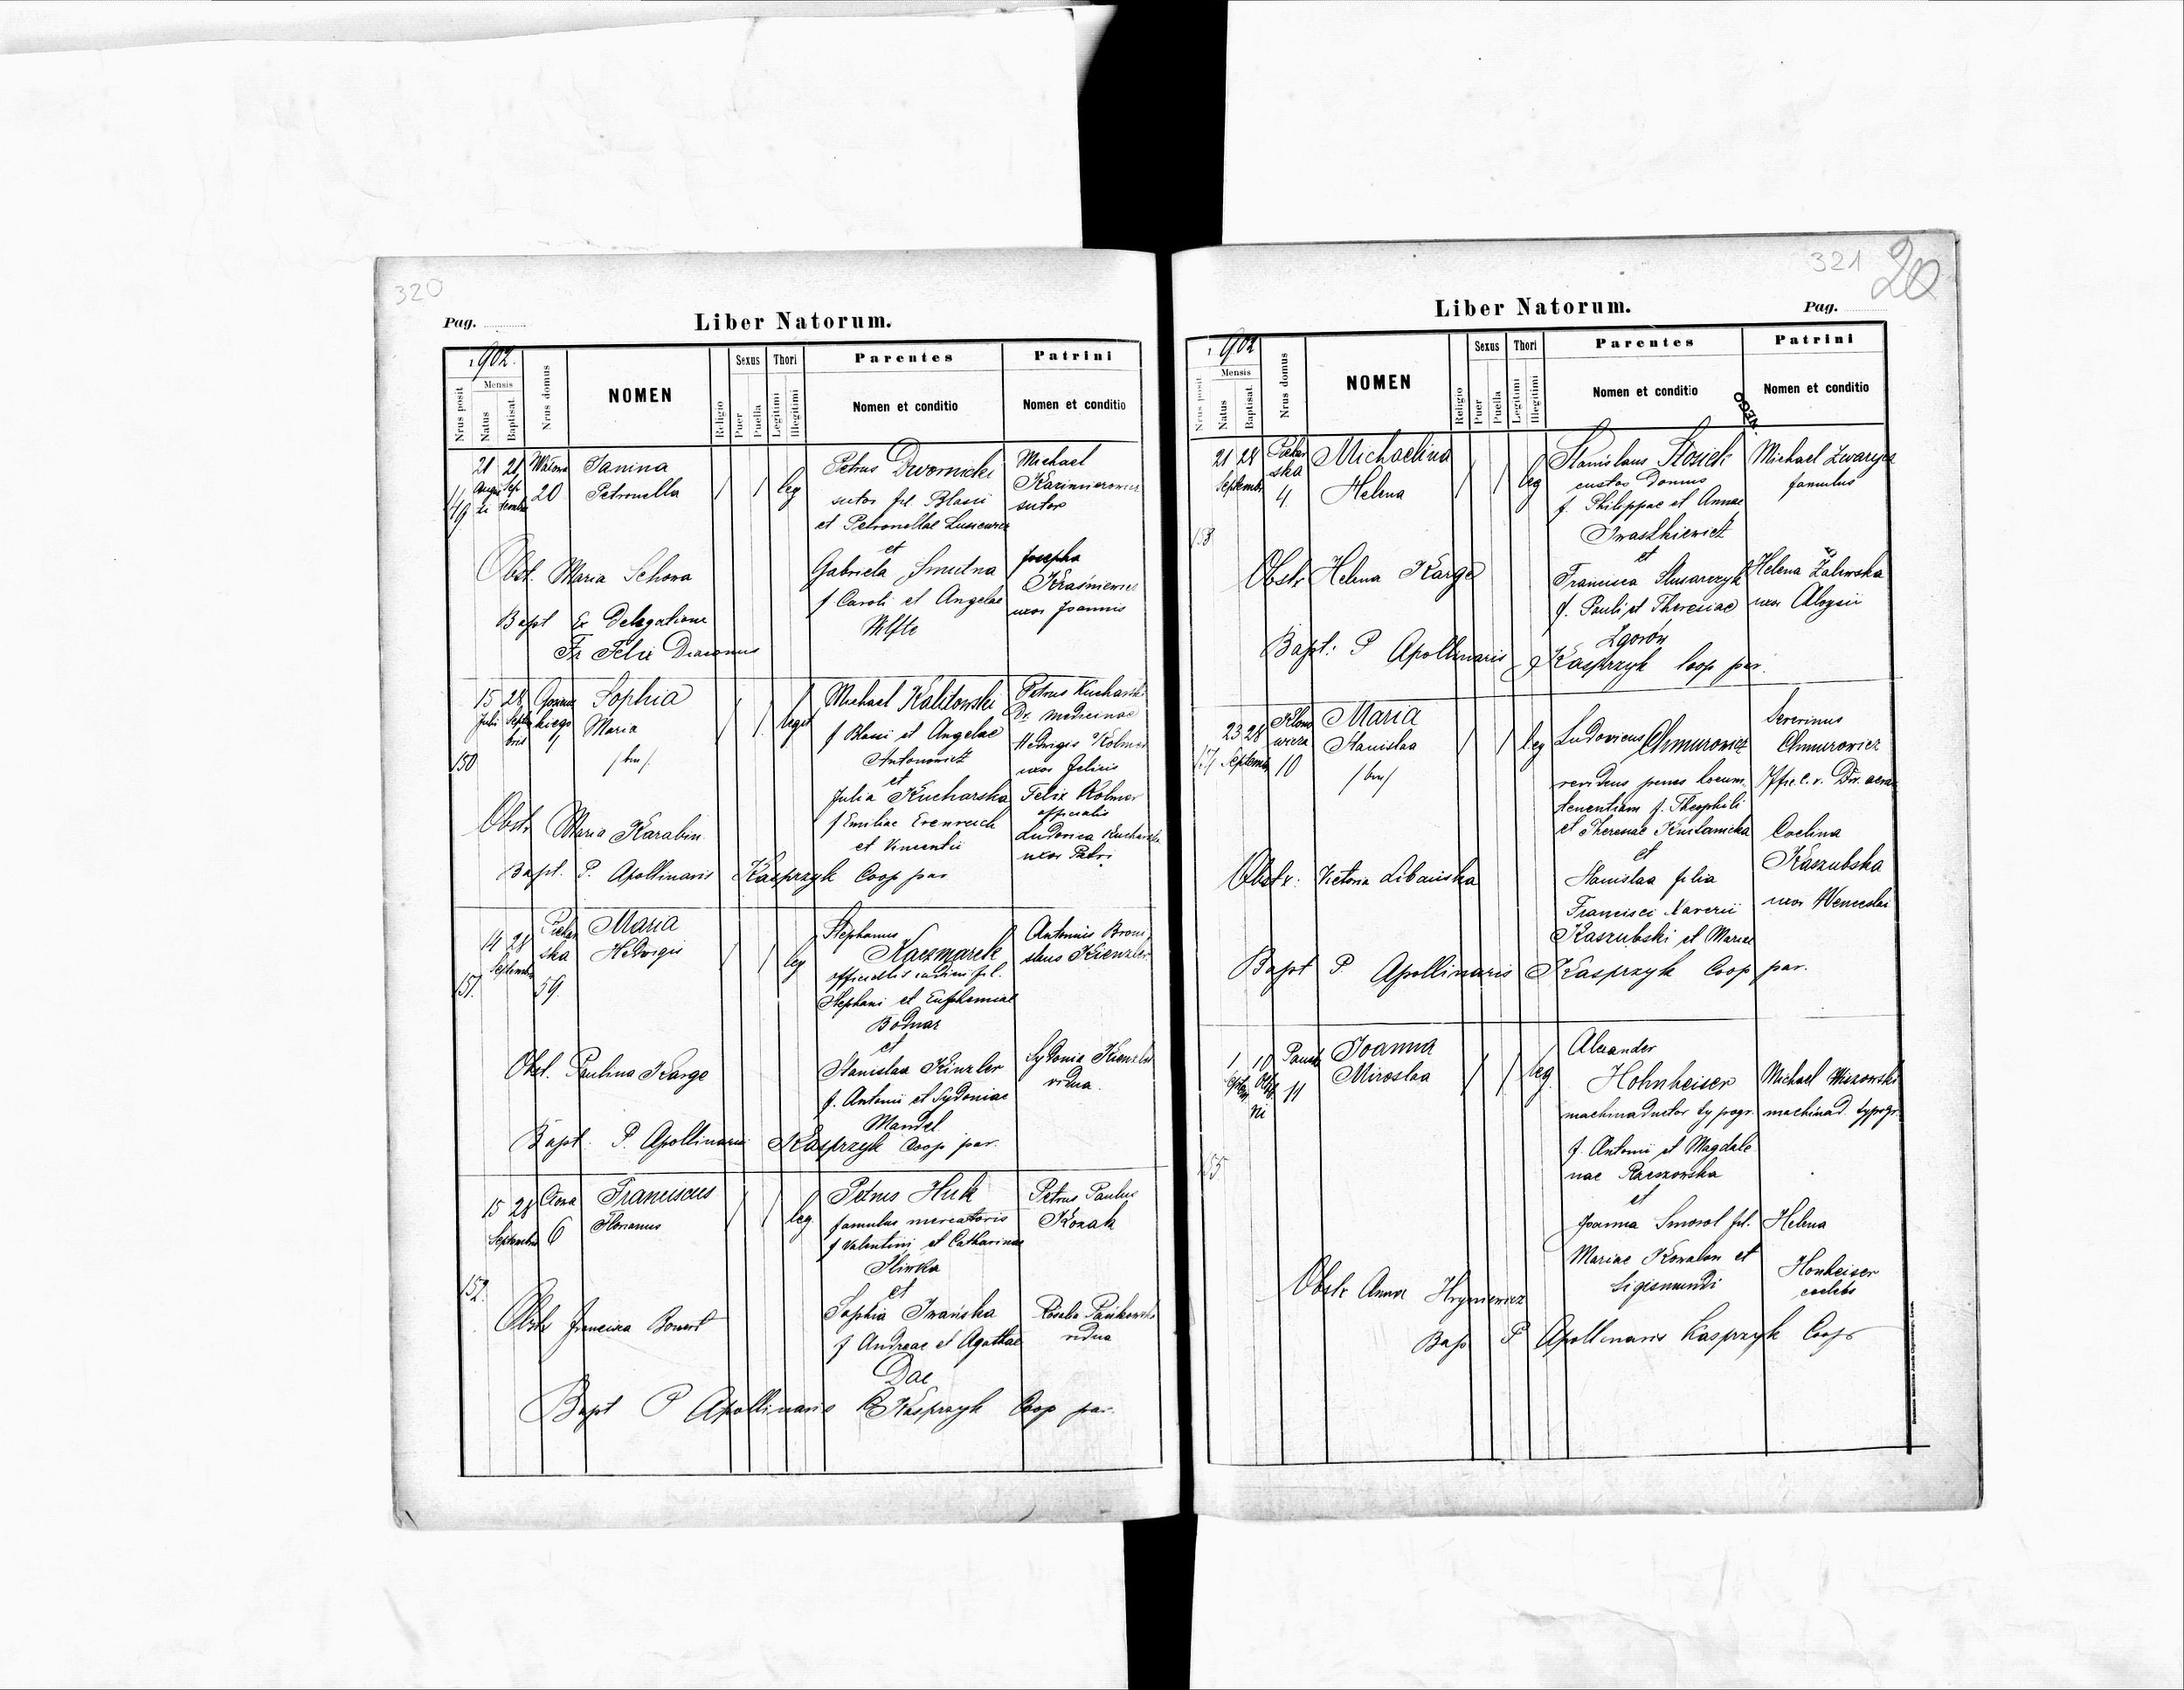 320
Pag.
Liber Natorum.
1902.
Nrus posit
Mensis
Natus
Baptisat.
Nrus domus
NOMEN
Religio
Sexus
Puer
Puella
Thori
Legitimi
Illegitimi
Parentes
Nomen et conditio
Patrini
Nomen et conditio
149
21 21
Sep
tembr
20
Janina
Petronella
leg
Petrus Dwornicki
sutor fil. Blasii
et Petronellae Lusiewicz
et
Gabriela Smutna
f Caroli et Angelae
Michael
Kazimierowicz
sutor
Josepha
Kraśniewicz
uxor Joannis
Obst. Maria Schova
Bapt Ex Delegatione
Fr Felix Diaconus
150
15 28
Julii Septem
bris
9
Sophia
Maria
/bm/
legit
Michael Kalitowski
f Blasii et Angelae
Antonowicz
et
Julia Kucharska
f Emiliae Erenreich
et Vincentii
Petrus Kucharski
Dr. medicinae
Hedvigis Kolmer
uxor Felicis
Felix Kolmer
officialis
Ludovica Kucharska
uxor Petri
Obstr Maria Karabin
Bapt. P. Apollinaris Kasprzyk Coop par
151
14 28
Septembr
Piekar
ska
59
Maria
Hedvigis
leg
Stephanus
Kaczmarek
officialis
fil.
Stephani et Euphemiae
Bodnar
et
Stanislaa Kinzler
f. Antonii et Sydoniae
Mandel
Antonius Broni
slaus Kienzler
Sydonia Kienzler
vidua
Obst. Paulina Karge
Bapt. P. Apollinaris Kasprzyk Coop par.
152.
15 28
Septembris
6
Franciscus
Florianus
leg.
Petrus Huk
famulus mercatoris
f Valentini et Catharinae
Sliwka
et
Sophia Iwańska
f Andreae et Agathae
Dac
Petrus Paulus
Kozak
Rosalia
vidua
Obstr Francisca
Bapt P Apollinaris Kasprzyk Coop par.
321
20
Liber Natorum.
Pag.
1902
Nrus posit
Mensis
Natus
Baptisat.
Nrus domus
NOMEN
Religio
Sexus
Puer
Puella
Thori
Legitimi
Illegitimi
Parentes
Nomen et conditio
Patrini
Nomen et conditio
153
21 28
Septembr
Piekar
ska
4
Michaelina
Helena
leg
Stanislaus
custos Domus
f. Philippae et Annae
Iwaszkiewicz
et
Francisca Slusarczyk
f. Pauli et Theresiae
Zgoroń
Michael Zwarycz
famulus
Helena Zaliwska
uxor Aloysii
Obstr Helena Karge
Bapt: P Apollinaris Kasprzyk Coop par.
23 28
Septembr
Klono
wicza
10
Maria
Stanislaa
/bm/
leg
Ludovicus Chmurowicz
revidens penes locum.
tenentiam f. Theophili
et Theresiae
et
Stanislaa filia
Francisci Xaverii
Kaszubski et Mariae
Severinus
Chmurowicz
Coelina
Kaszubska
uxor Venceslai
Obstr. Victoria Libańska
Bapt P Apollinaris Kasprzyk Coop par.
155
1 10
11
Joanna
Miroslaa
leg.
Alexander
Hohnheiser
machinaductor typogr.
f. Antonii et Magdale
nae Raczowska
et
Joanna Smorol fil.
Mariae Kowalon et
Sigismundi
Michael
machinad. typogr.
Helena
Honheiser
coelebs
Obstr Anna Hryniewicz
Bap P Apollinaris Kasprzyk Coop